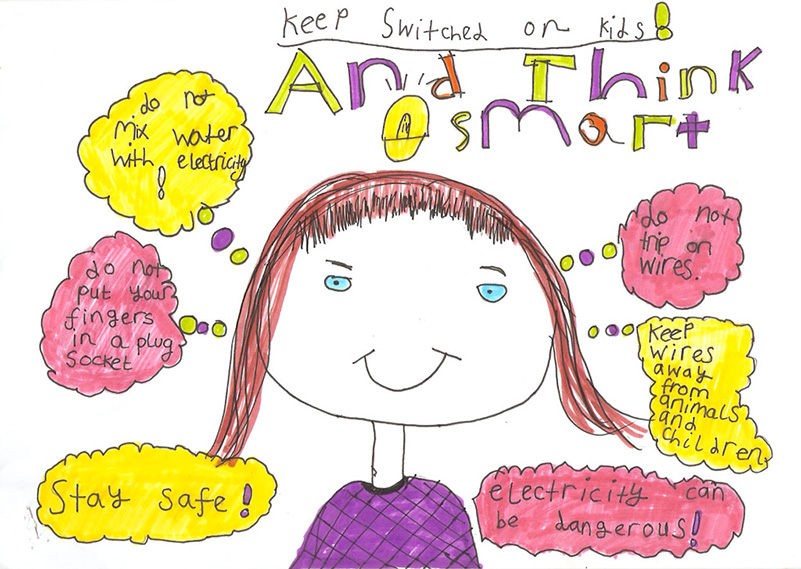 Keep Switched on kids!
And Think
smart
do not
mix water
with electricity
!
do not
trip on
wires.
do not
put your
fingers
in a plug
socket
Keep
wires
away
from
animals
and
children
Stay safe!
electricity can
be dangerous!